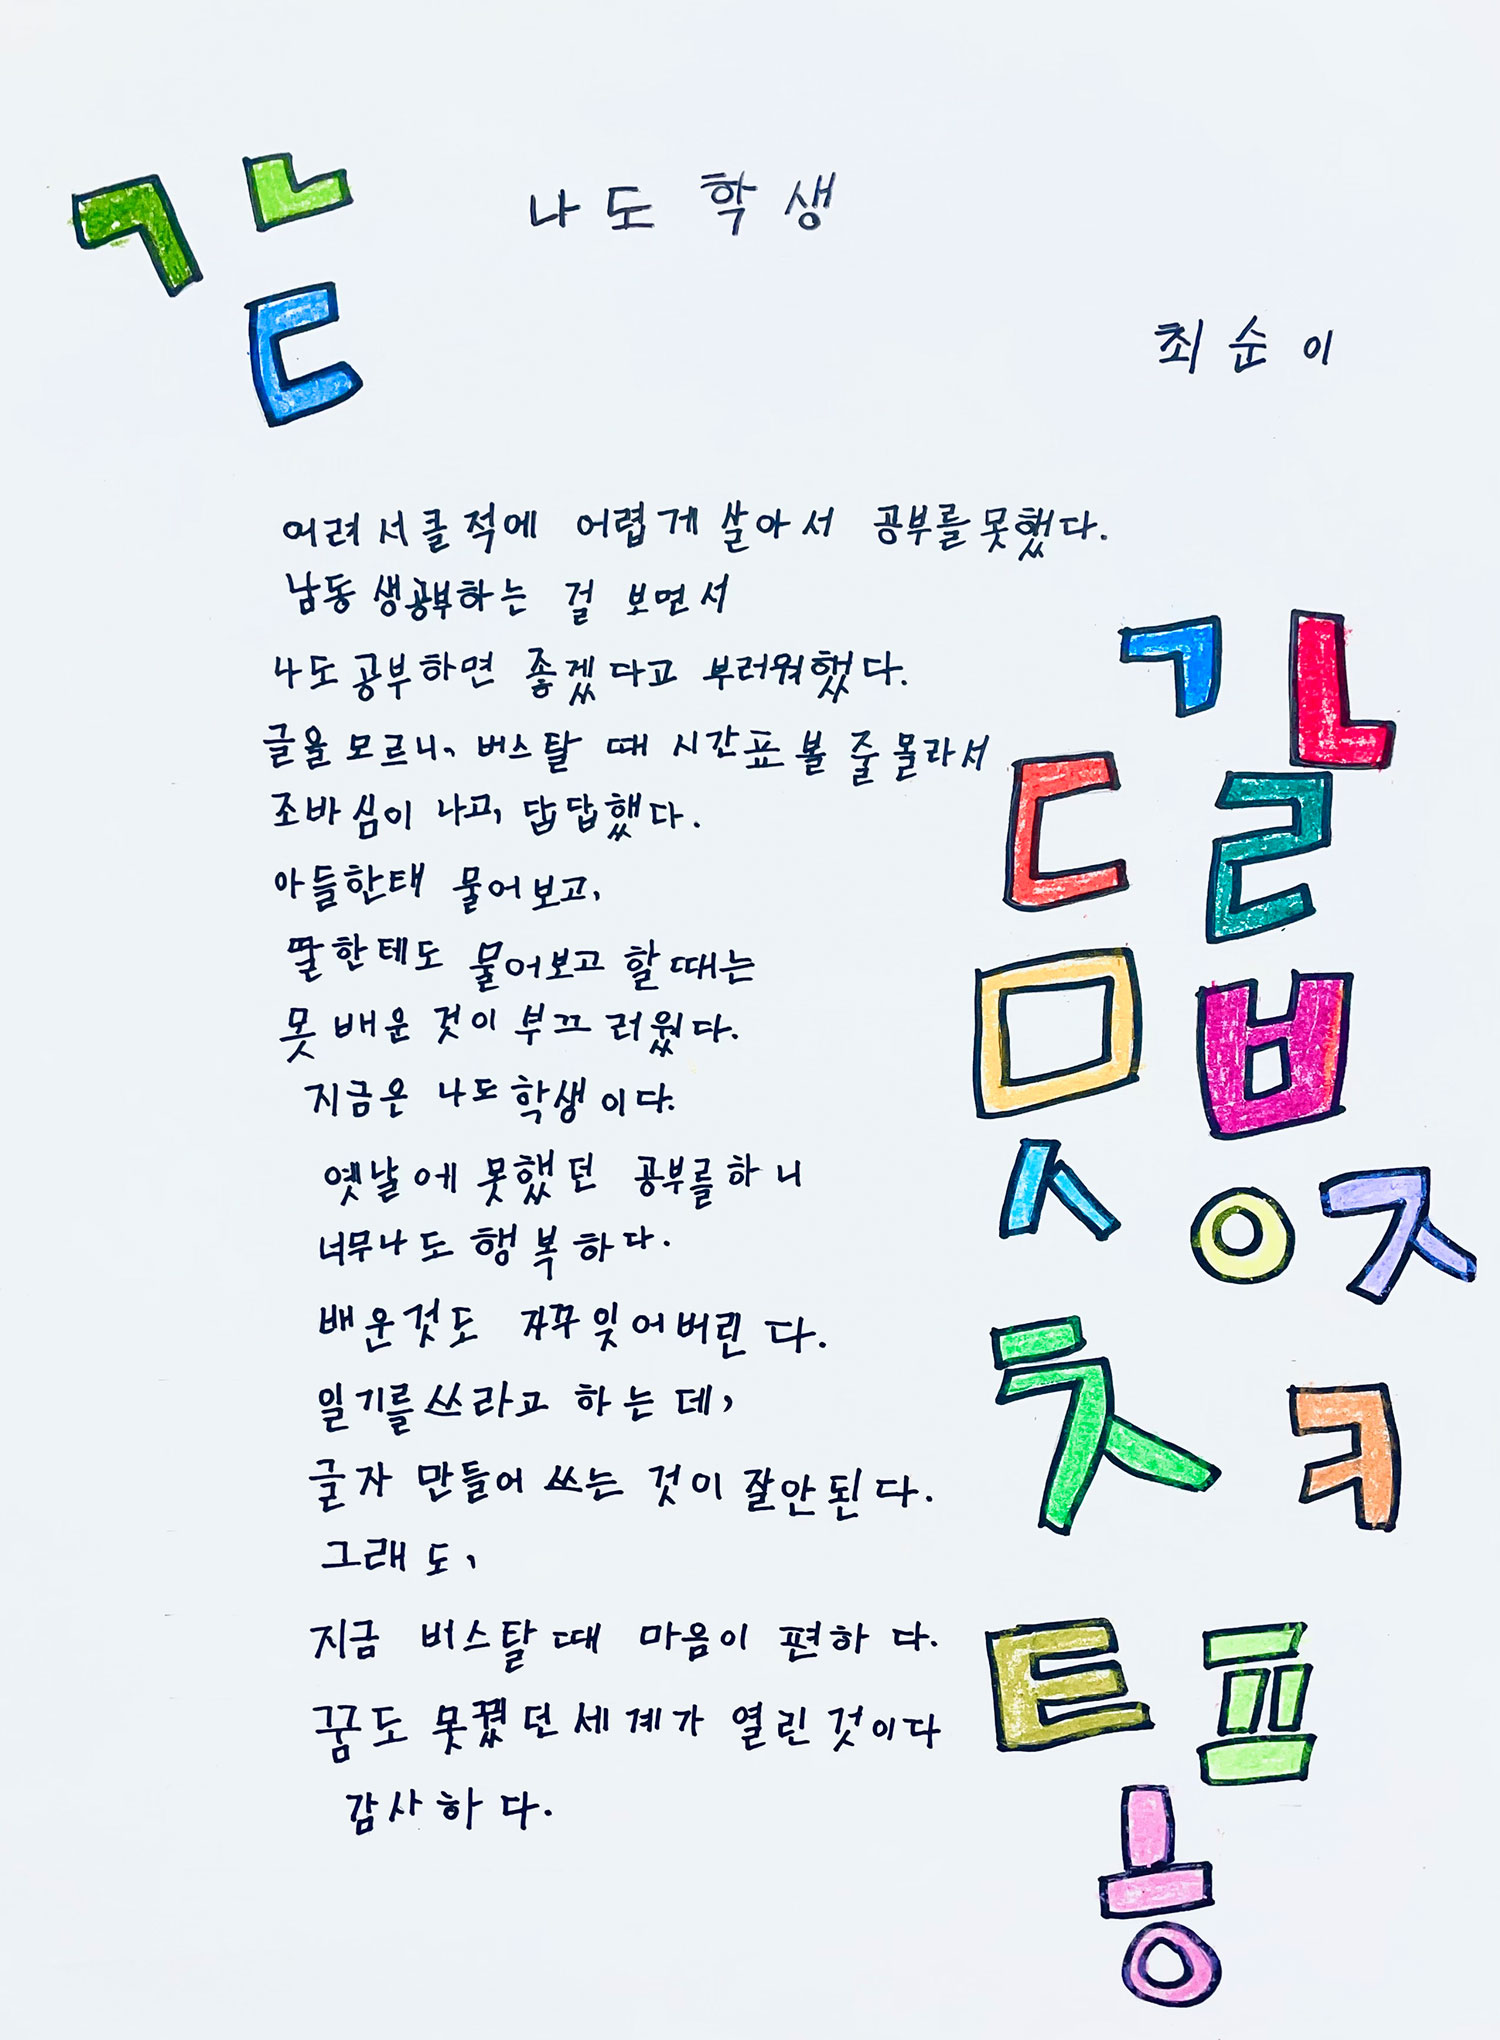 ㄱ ㄴ
ㄷ
나도 학생
최순이
어려서 클 적에 어렵게 살아서 공부를 못했다.
남동생 공부하는 걸 보면서
나도 공부하면 좋겠다고 부러워했다.
글을 모르니, 버스탈 때 시간표 볼 줄 몰라서
조바심이 나고, 답답했다.
아들한태 물어보고,
딸한테도 물어보고 할때는
못 배운 것이 부끄러웠다.
지금은 나도 학생이다.
옛날에 못했던 공부를 하니
너무나도 행복하다.
배운것도 자꾸 잊어버린다.
일기를 쓰라고 하는데,
글자 만들어 쓰는 것이 잘안된다.
그래도,
지금 버스탈때 마음이 편하다.
꿈도 못꿨던 세계가 열린 것이다
감사하다.
ㄱ ㄴ
ㄷ ㄹ
ㅁ ㅂ
ㅅ ㅇ ㅈ
ㅊ ㅋ
ㅌ ㅍ
ㅎ